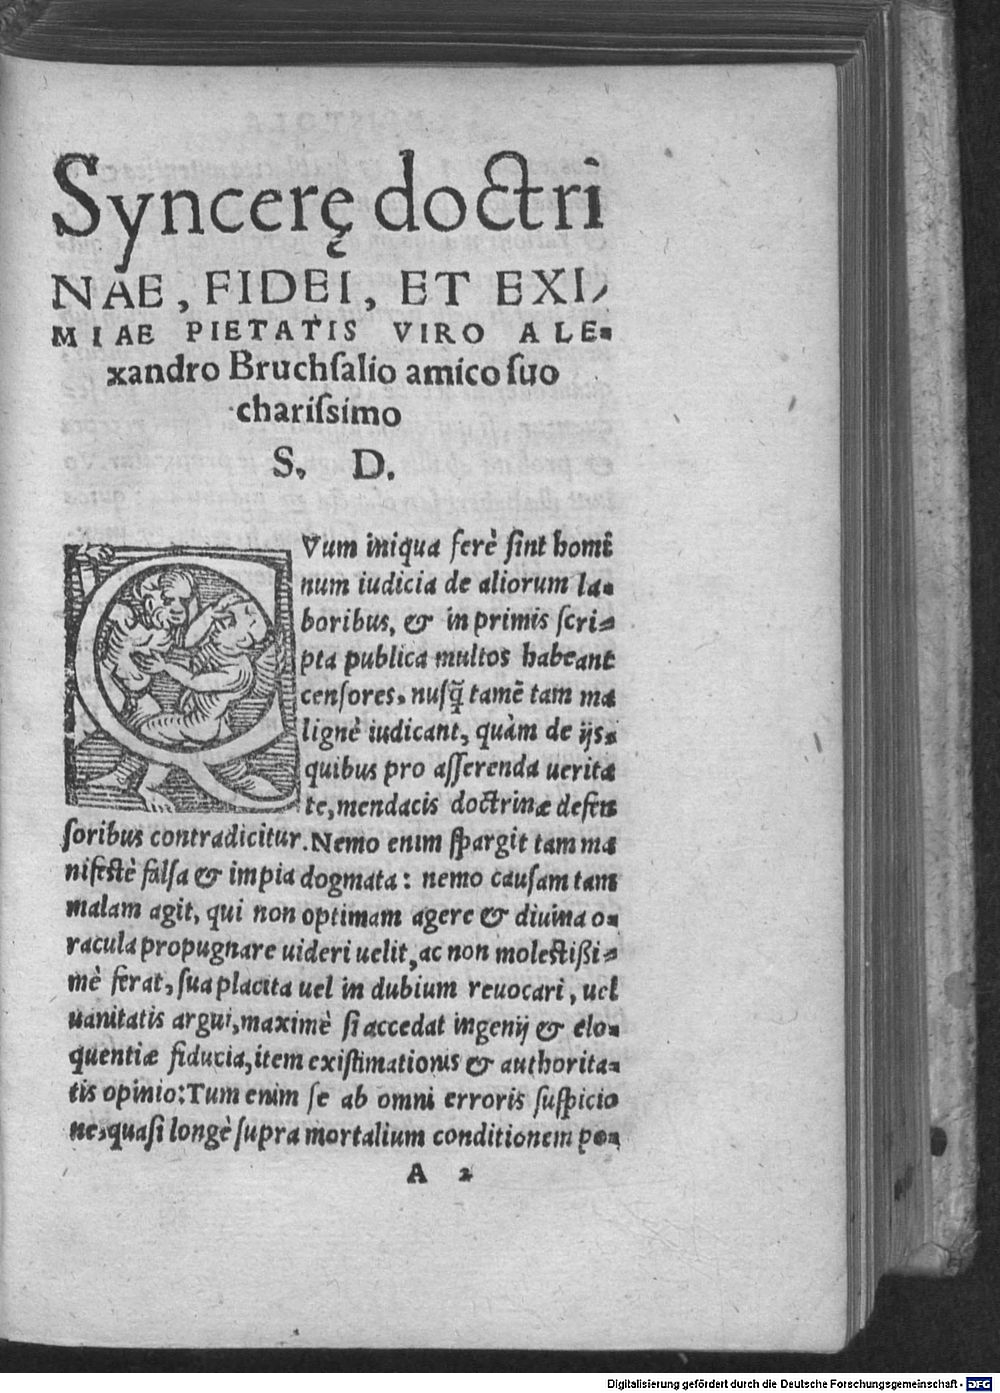 Syncerę doctri
NAE, FIDEI, ET EXI-
MIAE PIETATIS VIRO ALE-
xandro Bruchſalio amico ſuo
chariſsimo
S. D.
QVum iniqua ferè ſint homi
num iudicia de aliorum la-
boribus, & in primis ſcri-
pta publica multos habeant
cenſores, nuſq̃ tamẽ tam ma
lignè iudicant, quàm de ijs,
quibus pro aſſerenda uerita
te, mendacis doctrinæ defen
ſoribus contradicitur. Nemo enim ſpargit tam ma
nifeſtè falſa & impia dogmata: nemo cauſam tam
malam agit, qui non optimam agere & diuina o-
racula propugnare uideri uelit, ac non moleſtißi-
mè ferat, ſua placita uel in dubium reuocari, uel
uanitatis argui, maximè ſi accedat ingenij & elo-
quentiæ fiducia, item exiſtimationis & authorita-
tis opinio: Tum enim ſe ab omni erroris ſuſpicio
ne, quaſi longè ſupra mortalium conditionem po-
A 2
Digitalisierung gefördert durch die Deutsche Forschungsgemeinschaft - DFG